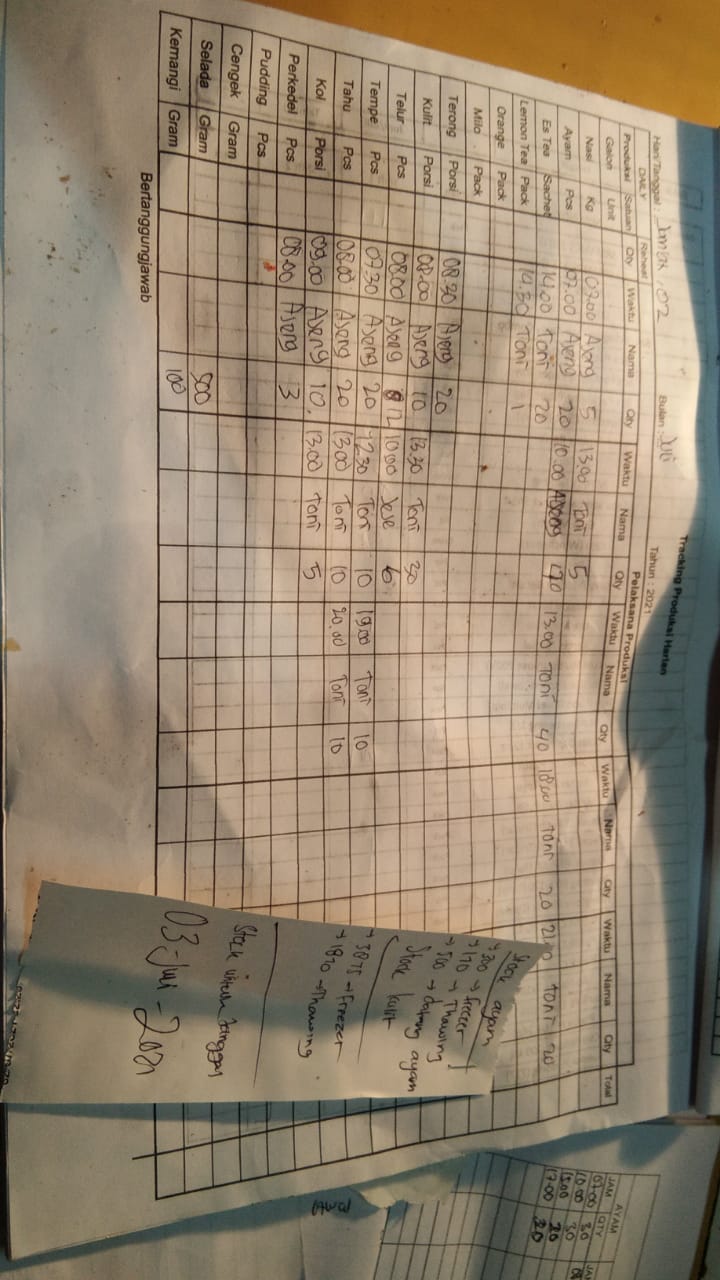 Tracking Produksi Harian
Hari/Tanggal : Jumat, 02 Bulan : Juli Tahun : 2021
DAILY Reheat Pelaksana Produksi
Produksi Satuan Qty Waktu Nama Qty Waktu Nama Qty Waktu Nama Qty Waktu Nama Qty Waktu Nama Qty Total
Galon Unit
Nasi Kg 07.00 Ajeng 5 13.00 Toni 5
Ayam Pcs 07.00 Ajeng 20 10.00 Ajeng 13.00 Toni 40 18.00 Toni 20 21.00 Toni 20
Es Tea Sachet 14.00 Toni 20
Lemon Tea Pack 14.30 Toni 1
Orange Pack
Milo Pack
Terong Porsi 08.30 Ajeng 20
Kulit Porsi 08.00 Ajeng 10 13.30 Toni 30
Telur Pcs 08.00 Ajeng 12 10.00 6
Tempe Pcs 07.30 Ajeng 20 12.30 Toni 10 19.00 Toni 10
Tahu Pcs 08.00 Ajeng 20 13.00 Toni 10 20.00 Toni 10
Kol Porsi 09.00 Ajeng 10 13.00 Toni 5
Perkedel Pcs 08.00 Ajeng 3
Pudding Pcs
Cengek Gram
Selada Gram 500
Kemangi Gram 100
Bertanggungjawab
Stock ayam
→ 300 → freezer
→ 170 → Thawing
→ 500 → datang ayam
Stock kulit
→ 3875 → Freezer
→ 1820 → Thawing
Stock untuk tanggal
03 - Juli - 2021
AYAM
JAM QTY JA
07.00 30 08
10.00 30
15.00 20
17.00 20